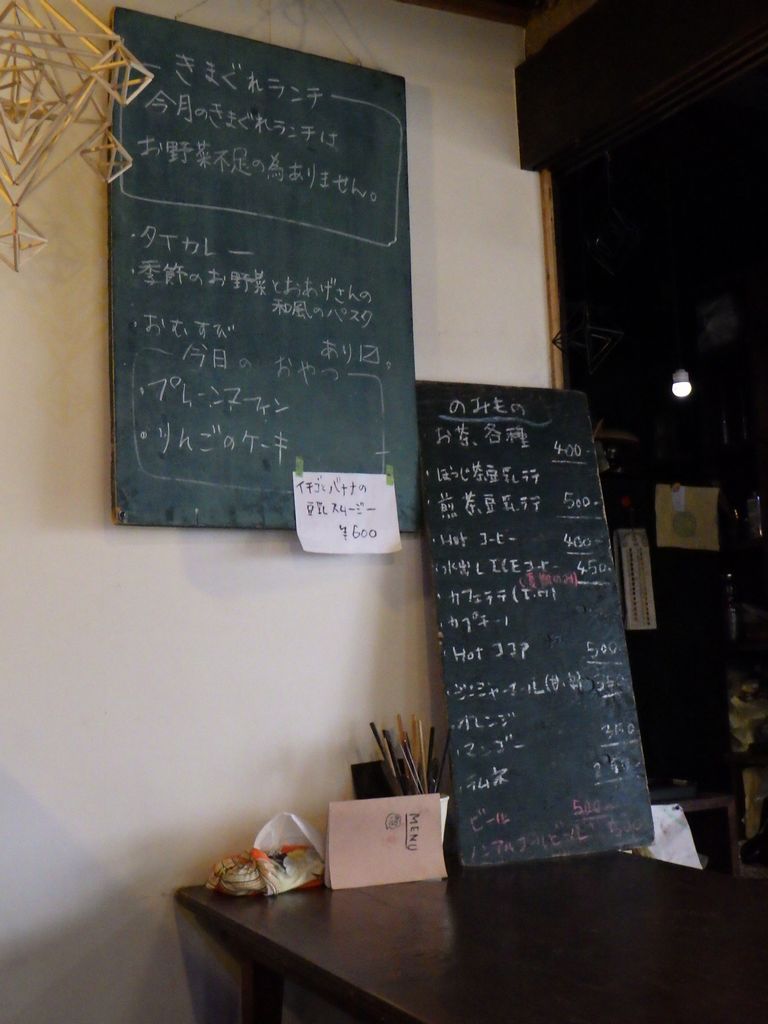 きまぐれランチ
今月のきまぐれランチは
お野菜不足の為ありません。
・タイカレー
・季節のお野菜とおあげさんの
和風のパスタ
・おむすび
あり〼。
今日のおやつ
・プレーンマフィン
・りんごのケーキ
イチゴとバナナの
豆乳スムージー
¥600
のみもの
お茶各種 400
・ほうじ茶豆乳ラテ
煎茶豆乳ラテ 500-
・Hot コーヒー 400-
・水出しICEコーヒー 450-
・カフェラテ
・カプチーノ
・Hot ココア 500
・ジンジャーエール
・オレンジ
・マンゴー 350
・ラムネ
・ビール 500-
・ノンアルコールビール 500
MENU